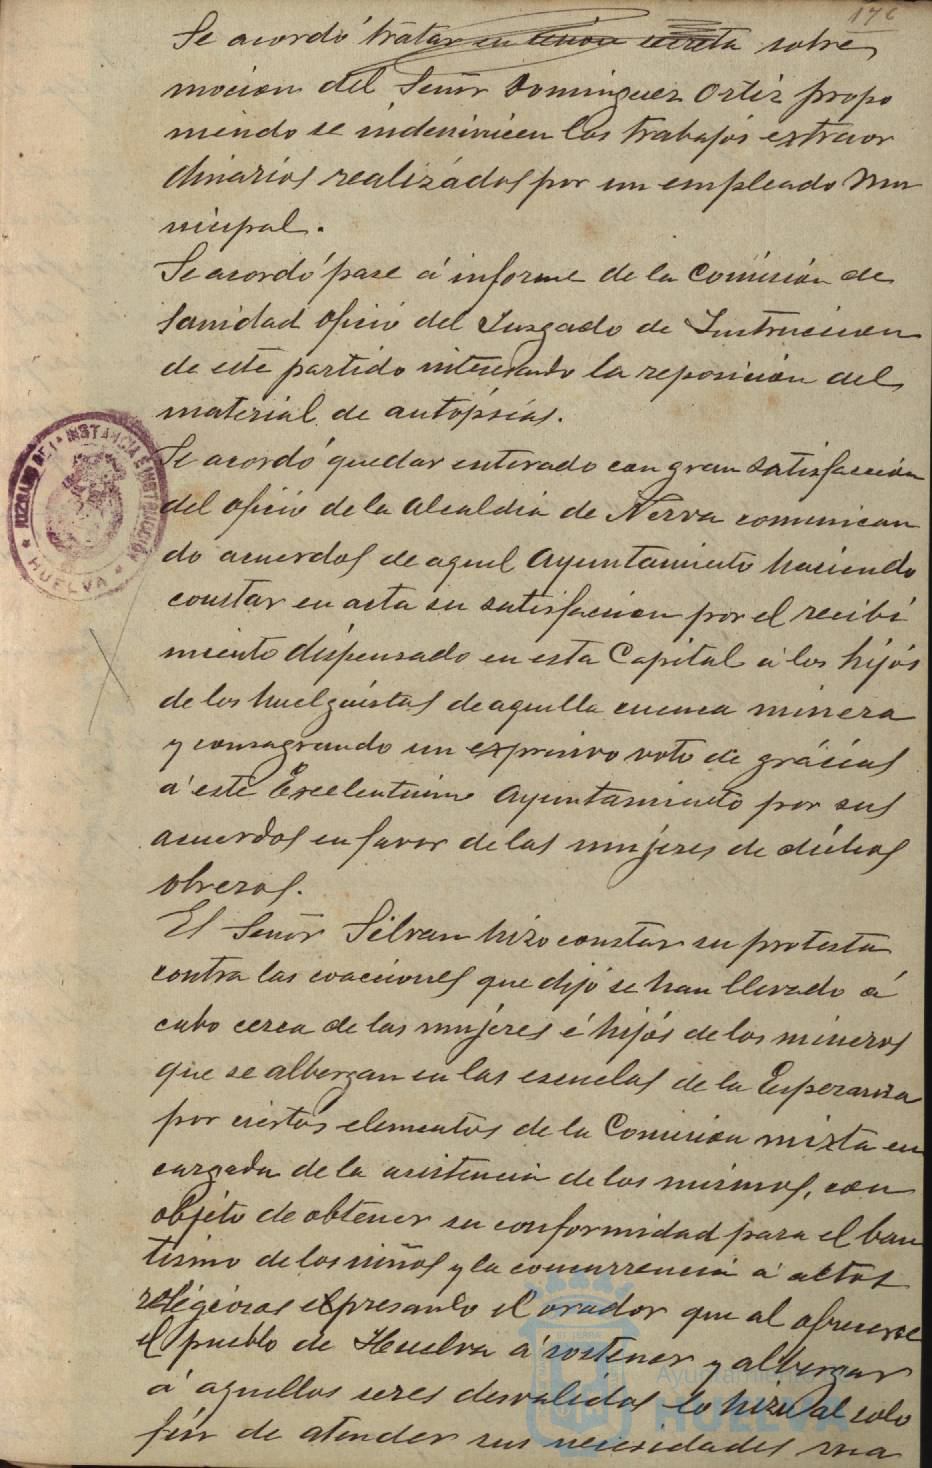 176
Se acordó tratar en sesión secreta sobre
mocion del Señor Dominguez Ortiz propo
niendo se indemnicen los trabajos extraor
dinarios realizados por un empleado Mu
nicipal.
Se acordó pase á informe de la Comisión de
Sanidad oficio del Juzgado de Instruccion
de este partido interesando la reposición del
material de autópsias.
Se acordó quedar enterado con gran satisfacción
del oficio de la Alcaldía de Nerva comunican
do acuerdos de aquel Ayuntamiento haciendo
constar en acta su satisfaccion por el recibi
miento dispensado en esta Capital á los hijos
de los huelguistas de aquella cuenca minera
y consagrando un expresivo voto de grácias
á este Excelentisimo Ayuntamiento por sus
acuerdos en favor de las mujeres de dichos
obreros.
El Señor Silvan hizo constar su protesta
contra las coacciones que dijo se han llevado á
cabo cerca de las mujeres é hijos de los mineros
que se albergan en las escuelas de la Esperanza
por ciertos elementos de la Comision mixta en
cargada de la asistencia de los mismos, con
objeto de obtener su conformidad para el bau
tismo de los niños y la concurrencia á actos
religiosos expresando el orador que al ofrecerse
el pueblo de Huelva á sostener y albergar
á aquellos seres desvalidos lo hizo al solo
fin de atender sus necesidades ma
JUZGADO DE 1ª INSTANCIA E INSTRUCCIÓN
* HUELVA *
Ayuntamiento
HUELVA